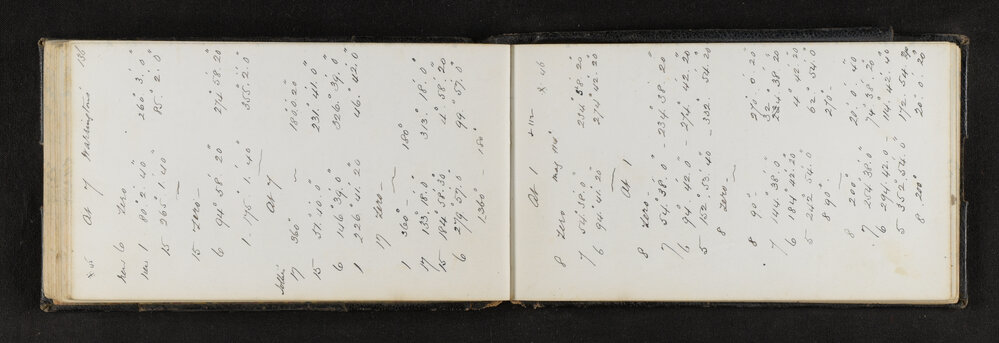 x 5 At 7 Warrington's 136
Nov 6 Zero
Nov 1 80° 2' 40" 260° 3' 0"
15 265 1 40" 85° 2' 0"
15 Zero —
6 94° 58' 20 274° 58' 20
1 175° 1' 40" 355° 2' 0"
At 7
17 360° 180.0.20
15 51° 40' 0" 231° 41' 0"
6 146° 39' 0" 326° 39' 0"
1 226° 41' 20 46° 42' 0"
17 Zero —
1 360° — 180°
17 133° 18' 0" 313° 18' 0"
15 184° 58' 30 4° 58' 20
6 279° 57' 0" 99° 57' 0"
1 360° — 180°
At 1 x 46
8 Zero
7 54° 38' 0" 234° 38' 20"
6 94° 41' 20 274° 42' 20
At 1
8 Zero —
7 54° 38' 0" — 234. 38. 20
6 94° 42' 0" — 274. 42. 20
5 152. 53. 40 — 332. 54. 20
8 Zero —
8 90 — 270. 0 20
7 144. 38' 0 234 38 20
6 184 42' 20 4° 42' 20
5 242 54' 0 62° 54' 0
8 90 — 270 —
8 200° 20° 0' 40
7 254 38' 0" 74° 38' 20"
6 294. 42' 0 — 114. 42. 40
5 352 54' 0" 172. 54. 20
8 200° 20. 0. 20